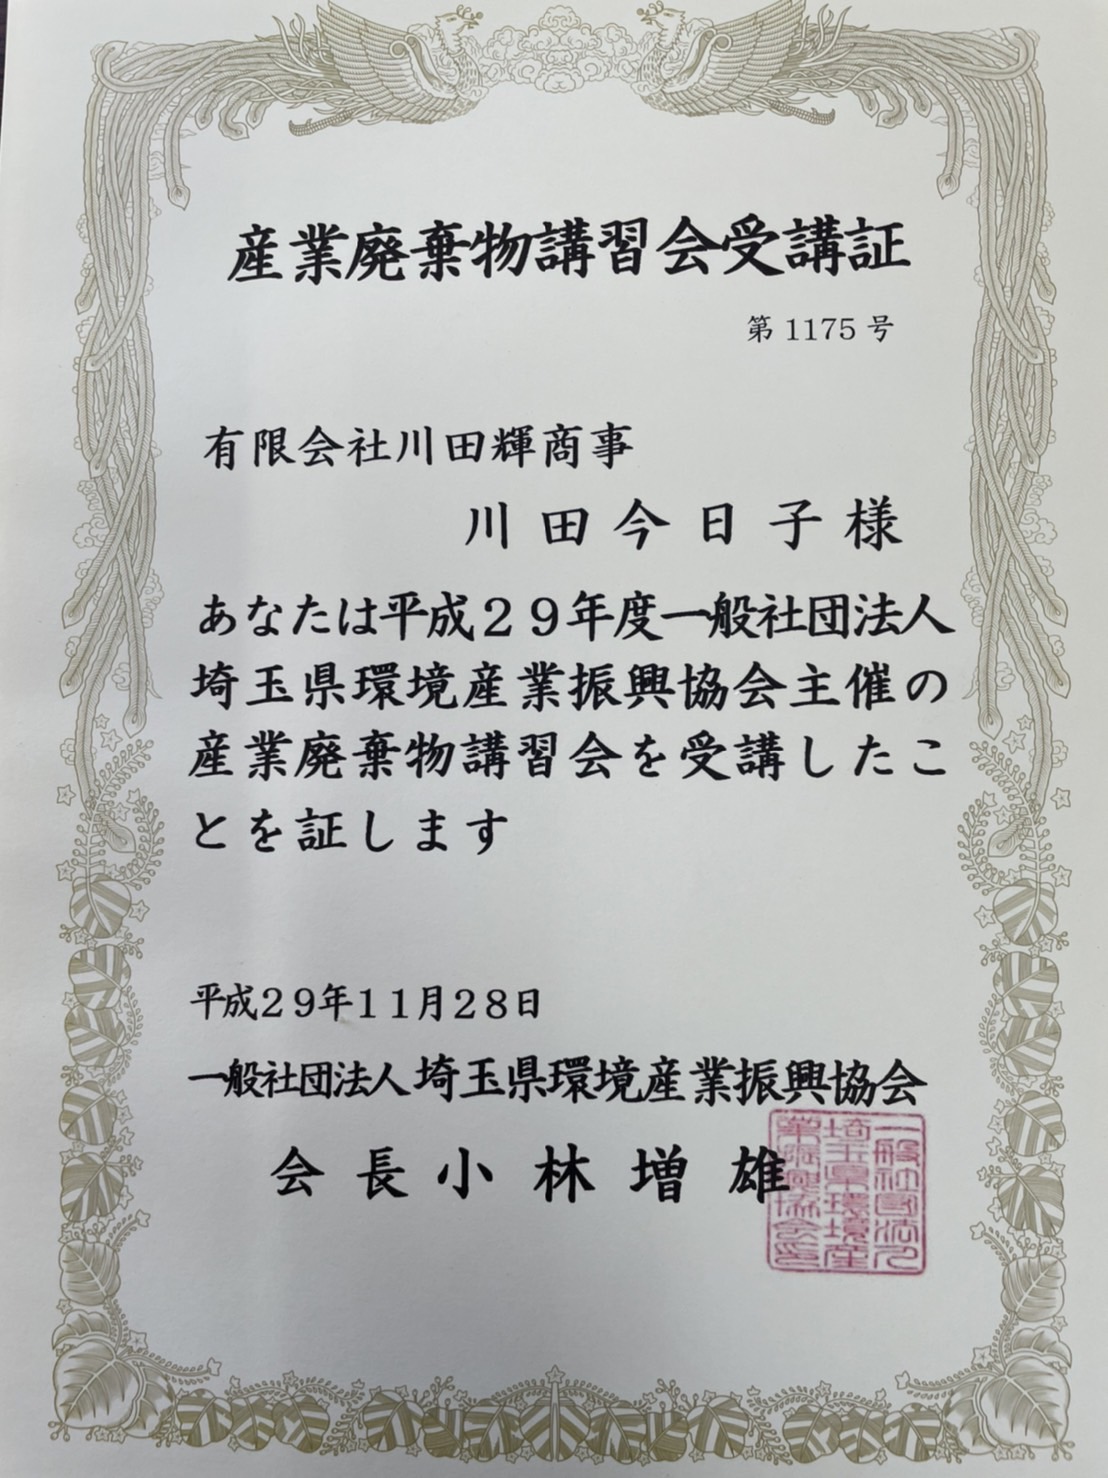 産業廃棄物講習会受講証
第1175号
有限会社川田輝商事
川田今日子様
あなたは平成29年度一般社団法人
埼玉県環境産業振興協会主催の
産業廃棄物講習会を受講したこ
とを証します
平成29年11月28日
一般社団法人埼玉県環境産業振興協会
会長小林増雄
一般社団法人
埼玉県環境産
業振興協会印